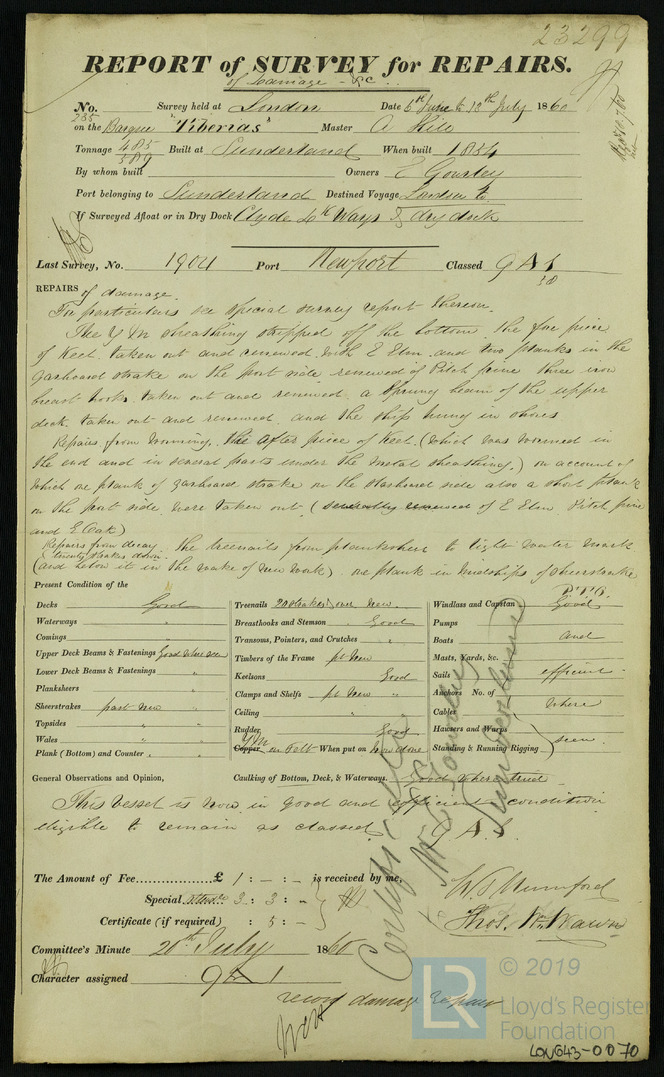 23299
REPORT of SURVEY for REPAIRS.
of Damage &c
No. 235 Survey held at London Date 6th June to 13th July 1860
on the Barque "Tiberias" Master A Hill
Tonnage 485 Built at Sunderland When built 1854
589
By whom built Owners E Gourley
Port belonging to Sunderland Destined Voyage London to
If Surveyed Afloat or in Dry Dock Clyde 4th Ways & dry dock
Last Survey, No. 1904 Port Newport Classed 9 A 1
58
REPAIRS of damage.
For particulars see special survey report thereon.
The Y M sheathing stripped off the bottom, the fore piece
of Keel taken out and renewed with E Elm and two planks in the
garboard strake on the port side renewed of Pitch pine three iron
breast hooks taken out and renewed a sprung beam of the upper
deck taken out and renewed and the ship hung in shores
Repairs from worming. The after piece of Keel (which was wormed in
the end and in several parts under the metal sheathing.) on account of
which one plank of garboard strake on the starboard side also a short plank
on the port side were taken out ( renewed of E Elm Pitch pine
and E Oak)
Repairs from decay. the treenails from planksheer to light water mark
(twenty strakes down
(and below it in the wake of new work) one plank in midships of sheerstrake
P.T.O.
Present Condition of the
Decks Good
Waterways "
Comings "
Upper Deck Beams & Fastenings Good where seen
Lower Deck Beams & Fastenings "
Planksheers "
Sheerstrakes part New
Topsides "
Wales "
Plank (Bottom) and Counter "
Treenails 20 strakes over New.
Breasthooks and Stemson Good
Transoms, Pointers, and Crutches "
Timbers of the Frame pt New
Keelsons Good
Clamps and Shelfs pt New
Ceiling "
Rudder Good
Y M
Copper on Felt When put on now done
Windlass and Capstan Good
Pumps
Boats and
Masts, Yards, &c.
Sails efficient
Anchors No. of
Cables where
Hausers and Warps
Standing & Running Rigging seen
General Observations and Opinion, Caulking of Bottom, Deck, & Waterways. Good where tried
This vessel is now in good and efficient condition
eligible to remain as classed 9 A 1.
The Amount of Fee £ 1 : - : - is received by me,
Special 3 : 3 : -
Certificate (if required) : 5 : -
W. T. Mumford
Thos. Wm Wawn
Committee's Minute 20th July 1860
Character assigned 9 A 1
record damage repair
© 2019
LR
Lloyd's Register
Foundation
LON643-0070